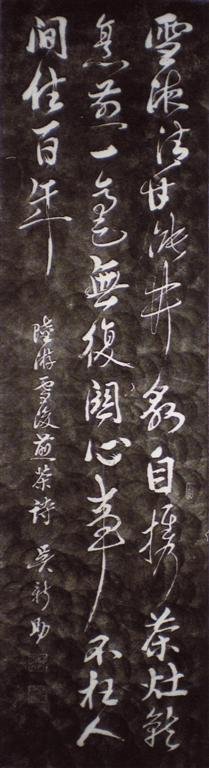 雪液清甘漲井泉自携茶灶就
烹煎一毫無復關心事不枉人
間住百年
陸游雪後煎茶詩 吳新助